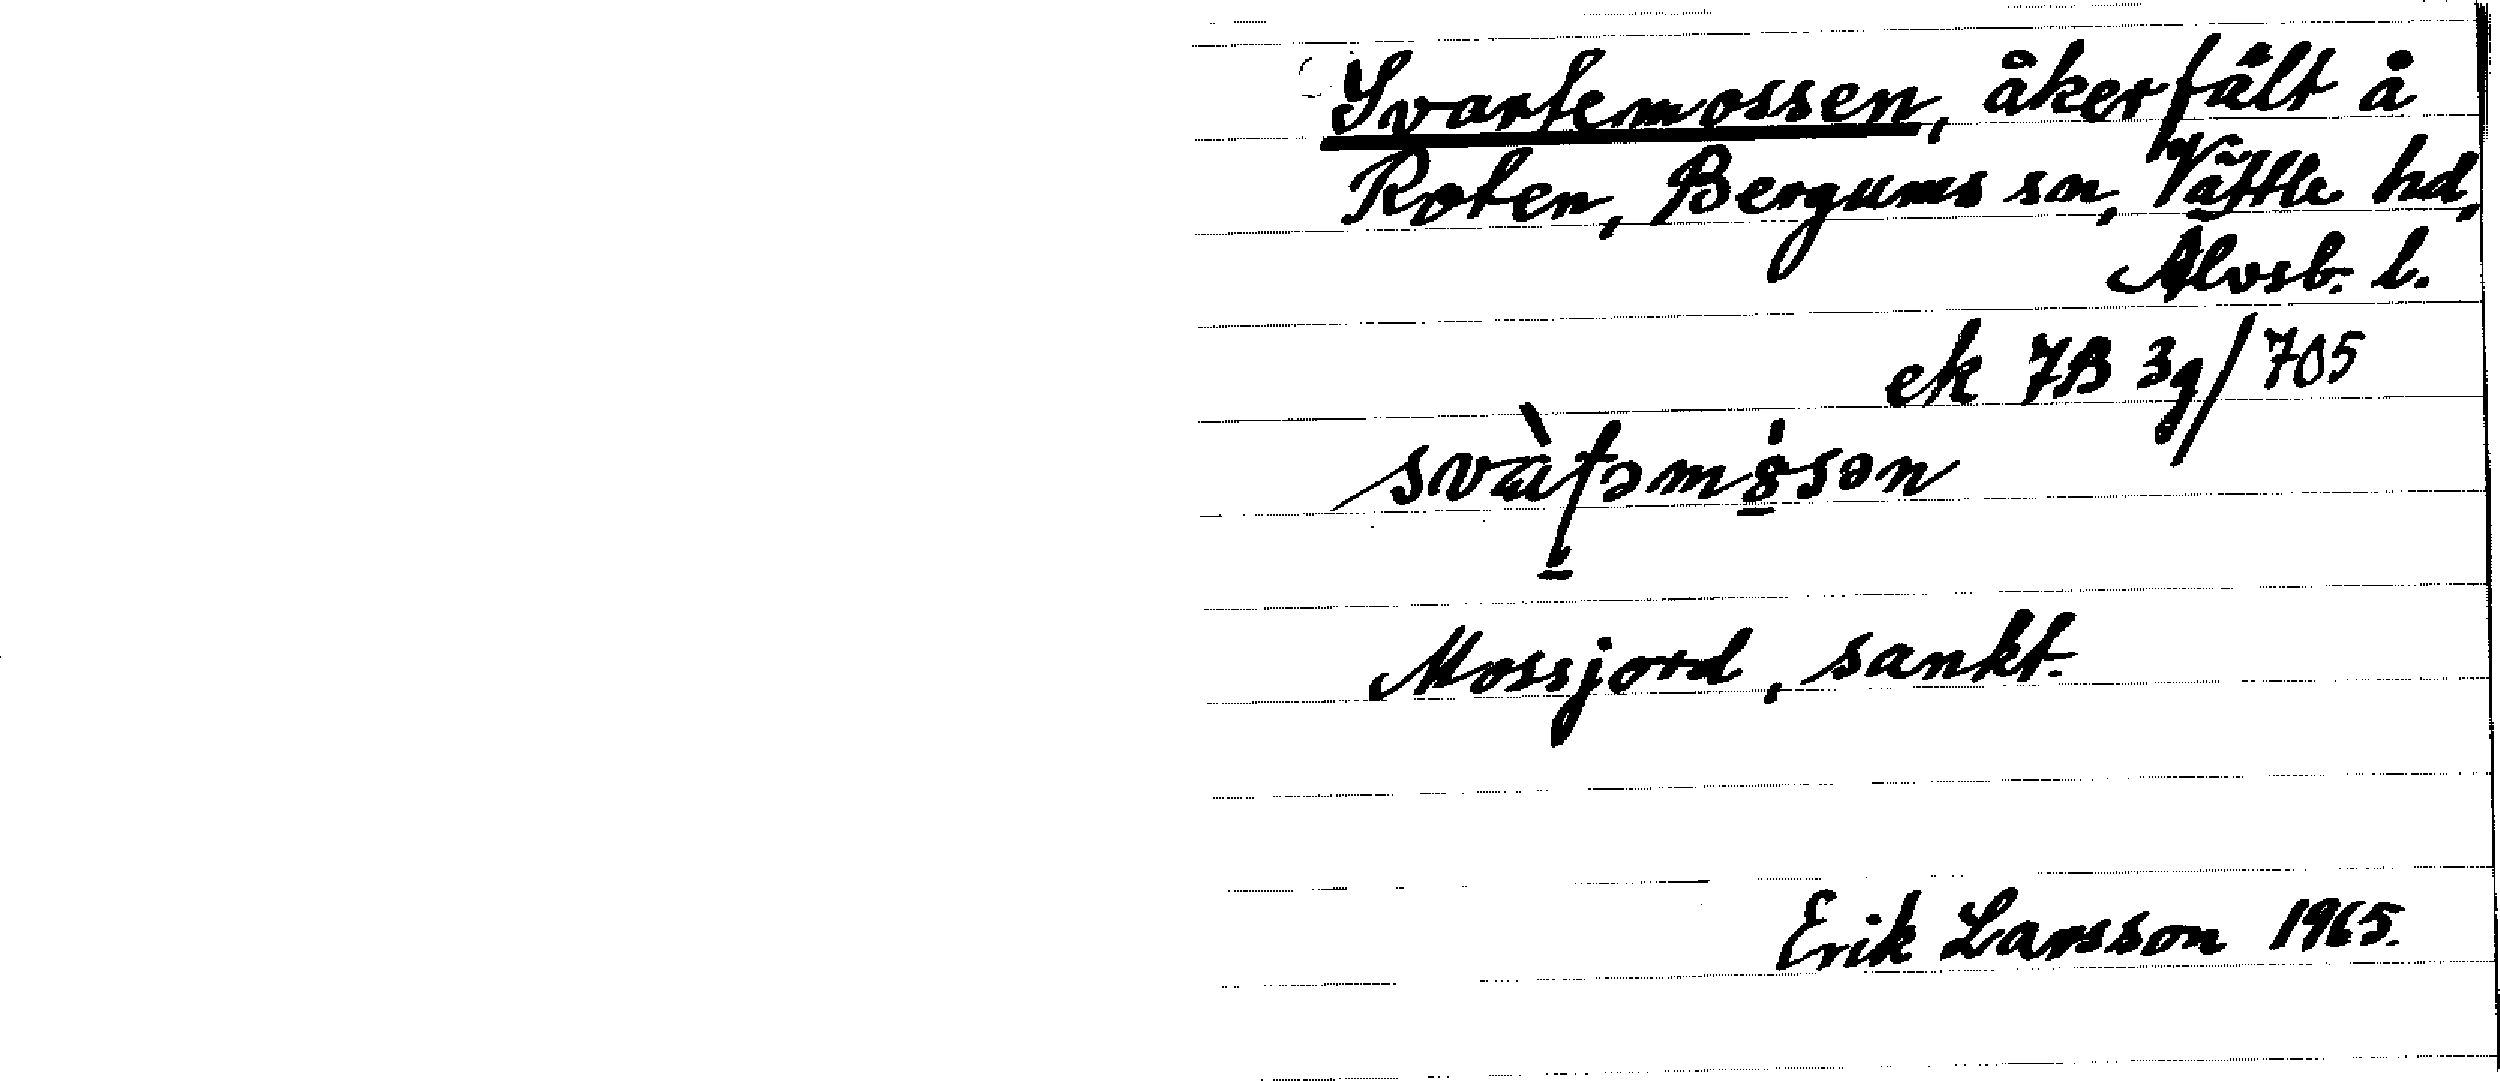 Svartemossen, åkerfält å
Roten, Bergums sn, Vättle hd,
Älvsb. l.
ek 7B 3g/705
Mossjord, sankt.
Erik Larsson 1965.